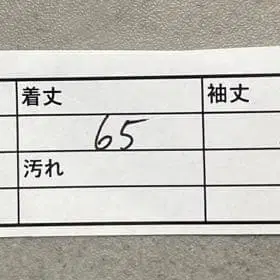 着丈 袖丈
65
汚れ